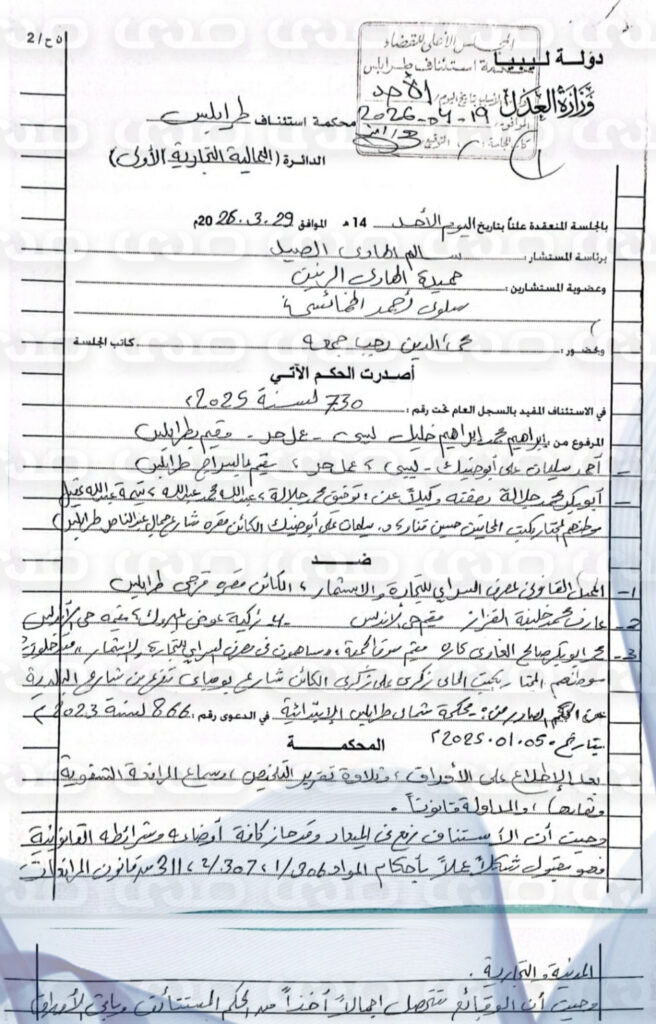 2/ح5
المجلس الأعلى للقضاء
دولة ليبيا
محكمة استئناف طرابلس
وزارة العدل
الأحد
2026-04-19
محكمة استئناف طرابلس
الدائرة ( المالية التجارية الأولى )
بالجلسة المنعقدة علناً بتاريخ اليوم الأحد 14 هـ الموافق 29.3.2026م
برئاسة المستشار: سالم الهادي الصيد
وعضوية المستشارين: حميدة الهادي
سلوى أحمد
وبحضور: الدين رجب جمعه كاتب الجلسة
أصدرت الحكم الآتي
في الاستئناف المقيد بالسجل العام تحت رقم: 730 لسنة 2025م
المرفوع من: إبراهيم محمد إبراهيم خليل ليبي - عمل حر - مقيم بطرابلس
- أحمد سليمان علي أبوخنيك - ليبي، عمل حر، مقيم بالسراج طرابلس
- أبوبكر محمد جلالة بصفته وكيلاً عن: توفيق محمد جلالة، عبدالله محمد عبدالله
موطنهم المختار مكتب المحاميين حسين و. سليمان علي أبوخنيك الكائن مقره شارع جمال عبدالناصر طرابلس )
ضد
1- الممثل القانوني لمصرف السراي للتجارة والاستثمار، الكائن مقره طرابلس
2- عارف محمد خليفة القزاز مقيم حي الأندلس
3- محمد أبوبكر صالح الغاوي مقيم سوق الجمعة، ومساهمون في مصرف السراي للتجارة والاستثمار
موطنهم المختار بمكتب المحامي زكري علي زكري الكائن شارع متفرع من شارع البلدية
عن الحكم الصادر من: محكمة شمال طرابلس الابتدائية في الدعوى رقم: 866 لسنة 2023م
بتاريخ 05.01.2025م
المحكمة
بعد الإطلاع على الأوراق، وتلاوة تقرير التلخيص، وسماع المرافعة الشفوية
ونهايتها، والمداولة قانوناً.
وحيث أن الاستئناف رفع في الميعاد وقد حاز كافة أوضاعه وشرائطه القانونية
فهو مقبول شكلاً عملاً بأحكام المواد 306/1، 307/2، 311 من قانون المرافعات
المدنية والتجارية.
وحيث أن الوقائع تتحصل إجمالاً أخذاً من الحكم المستأنف وباقي الأوراق